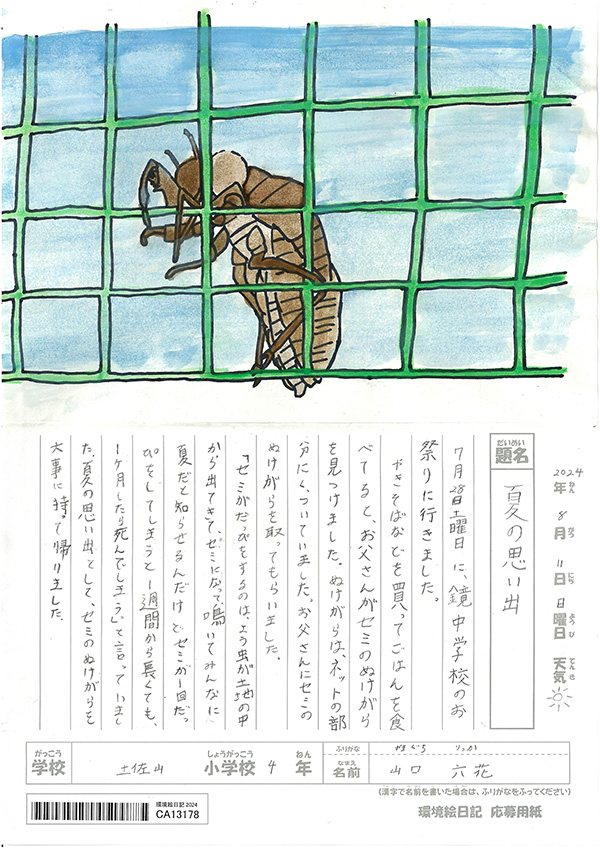 2024年 8月 11日 日曜日 天気
ねん がつ にち ようび てんき
だいめい
題名
夏の思い出
7月28日土曜日に、鏡中学校のお
祭りに行きました。
やきそばなどを買ってごはんを食
べてると、お父さんがセミのぬけがら
を見つけました。ぬけがらは、ネットの部
分にくっついていました。お父さんにセミの
ぬけがらを取ってもらいました。
「セミがだっぴをするのは、よう虫が土地の中
から出てきて、セミになって鳴いてみんなに
夏だと知らせるんだけどセミが一回だっ
ぴをしてしまうと一週間から長くても、
1ケ月したら死んでしまう」と言っていまし
た。夏の思い出として、セミのぬけがらを
大事に持って帰りました。
がっこう しょうがっこう ねん
学校 土佐山 小学校 4 年
ふりがな やまぐち りっか
なまえ
名前 山口 六花
(漢字で名前を書いた場合は、ふりがなをふってください)
環境絵日記 2024
CA13178
環境絵日記 応募用紙